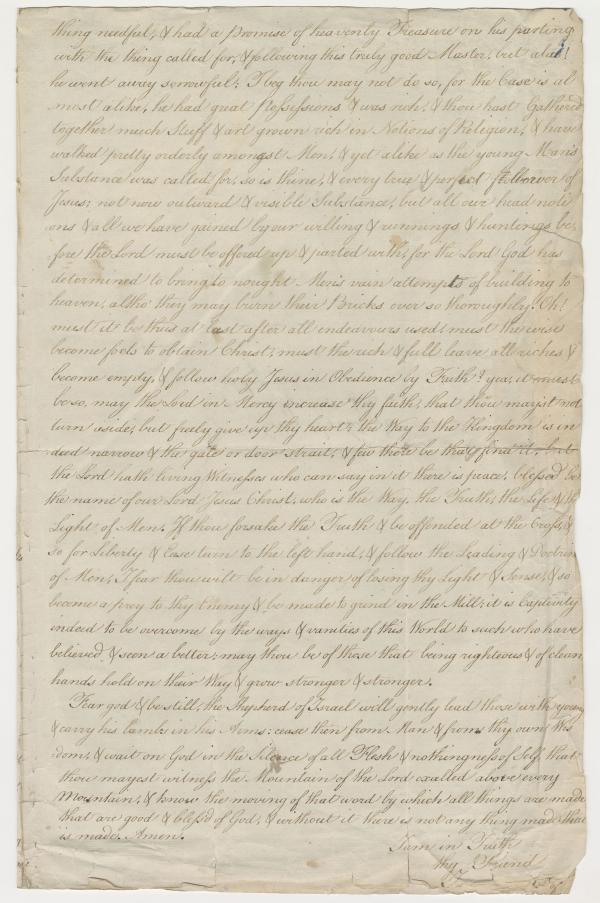 thing needful, & had a Promise of heavenly Treasure on his parting
with the thing called for, & following this truly good Master, but alas!
he went away sorrowful; I beg thou may not do so, for the Case is al
most alike, he had great Possessions & was rich, & thou hast Gathered
together much Stuff & art grown rich in Notions of Religion, & have
walked pretty orderly amongst Men, & yet alike as the young Man's
Substance was called for, so is thine, & every true & perfect follower of
Jesus; not now outward & visible Substance, but all our head noti
ons & all we have gained by our willing & runnings & huntings be,
fore the Lord must be offered up & parted with, for the Lord God has
determined to bring to nought Men's vain attempts of building to
heaven, altho' they may burn their Bricks ever so thoroughly. Oh!
must it be thus at last after all endeavours used, must the wise
become fools to obtain Christ, must the rich & full leave all riches &
become empty, & follow holy Jesus in Obedience by Faith? yea, it must
be so, may the Lord in Mercy increase thy faith, that thou mayst not
turn aside, but freely give up thy heart; the Way to the Kingdom is in
deed narrow & the gate or door strait, & few there be that find it, but
the Lord hath living Witnesses who can say in it there is peace, blessed be
the name of our Lord Jesus Christ, who is the Way, the Truth, the Life &
Light of Men. If thou forsake the Truth & be offended at the Cross, &
so for Liberty & Ease turn to the left hand, & follow the Leading & Doctrin
of Men, I fear thou wilt be in danger of losing thy Light & Sense, & so
become a prey to thy Enemy & be made to grind in the Mill; it is Captivity
indeed to be overcome by the ways & vanities of this World to such who have
believed & seen a better; may thou be of those that being righteous & of clean
hands hold on their Way & grow stronger & stronger.
Fear god & be still, the Shepherd of Israel will gently lead those with young
& carry his lambs in his Arms; cease then from Man & from thy own Wis
dom, & wait on God in the Silence of all Flesh & nothingness of Self, that
thou mayst witness the Mountain of the Lord exalted above every
Mountain, & know the moving of that word by which all things are made
that are good & bless'd of God, & without it there is not any thing made that
is made. Amen.
I am in Truth
thy Friend